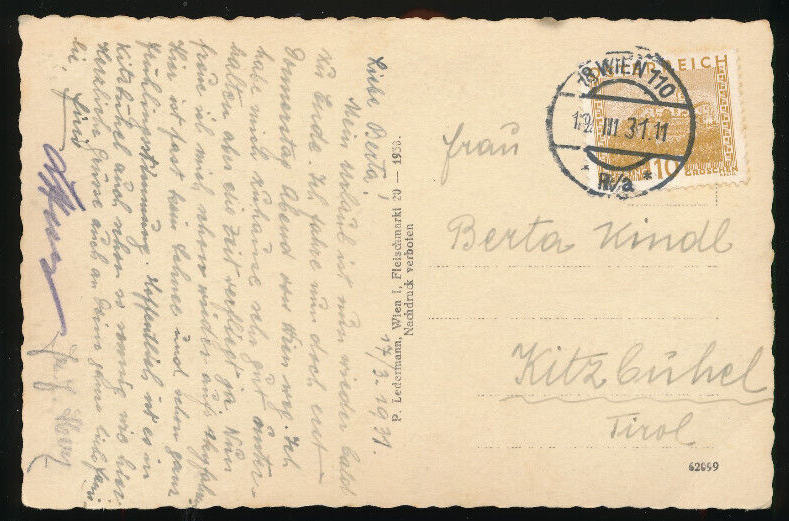 17/3. 1931.
Liebe Berta!
Mein Urlaub ist nun wieder bald
zu Ende. Ich fahre nun doch erst
Donnerstag Abend von Wien weg. Ich
habe mich zuhause sehr gut unter-
halten aber die Zeit verfliegt ja. Nun
freue ich mich schon wieder aufs
Hier ist fast kein Schnee und schon ganz
Frühlingsstimmung. Hoffentlich ist es in
Kitzbühel auch schon so wenig wie hier
Herzliche Grüße auch an Deine ganze liebe Fami-
lie,
P. Ledermann, Wien I, Fleischmarkt 20 — 1930.
Nachdruck verboten
ÖSTERREICH
10
GROSCHEN
18 WIEN 110
III 31.11
*
Frau
Berta Kindl
Kitzbühel
Tirol
62699